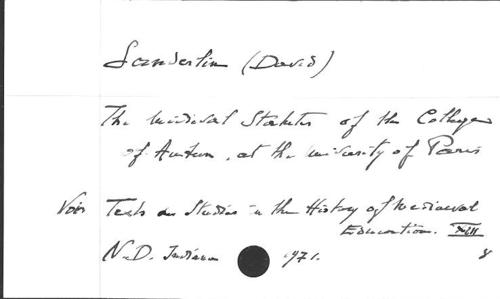 Sanderlin (David)
The Medieval Statutes of the College
of Autun, at the university of Paris
Voir Texts and Studies in the History of Mediaeval
Education. XIII
N.D. Indiana 1971. 8